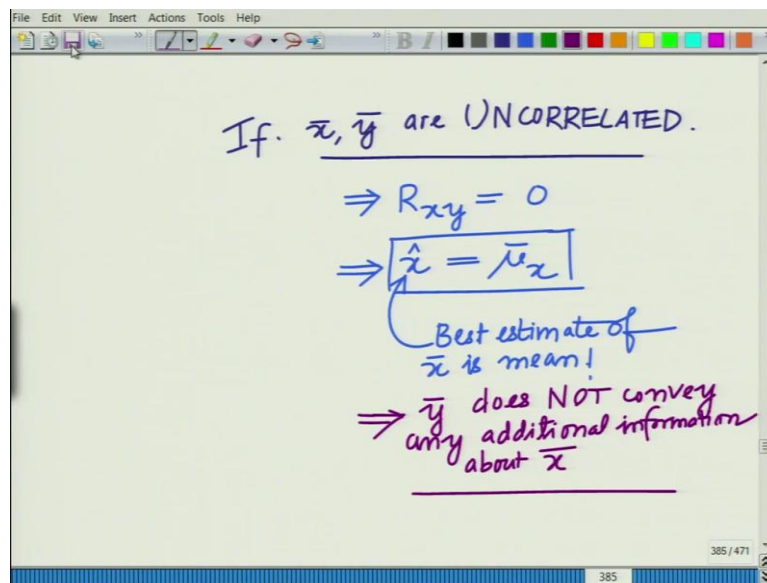 File Edit View Insert Actions Tools Help
B I
If. x̅, y̅ are UNCORRELATED.
⇒ Rxy = 0
⇒ x̂ = μ̅x
Best estimate of
x̅ is mean!
⇒ y̅ does NOT convey
any additional information
about x̅
385 / 471
385